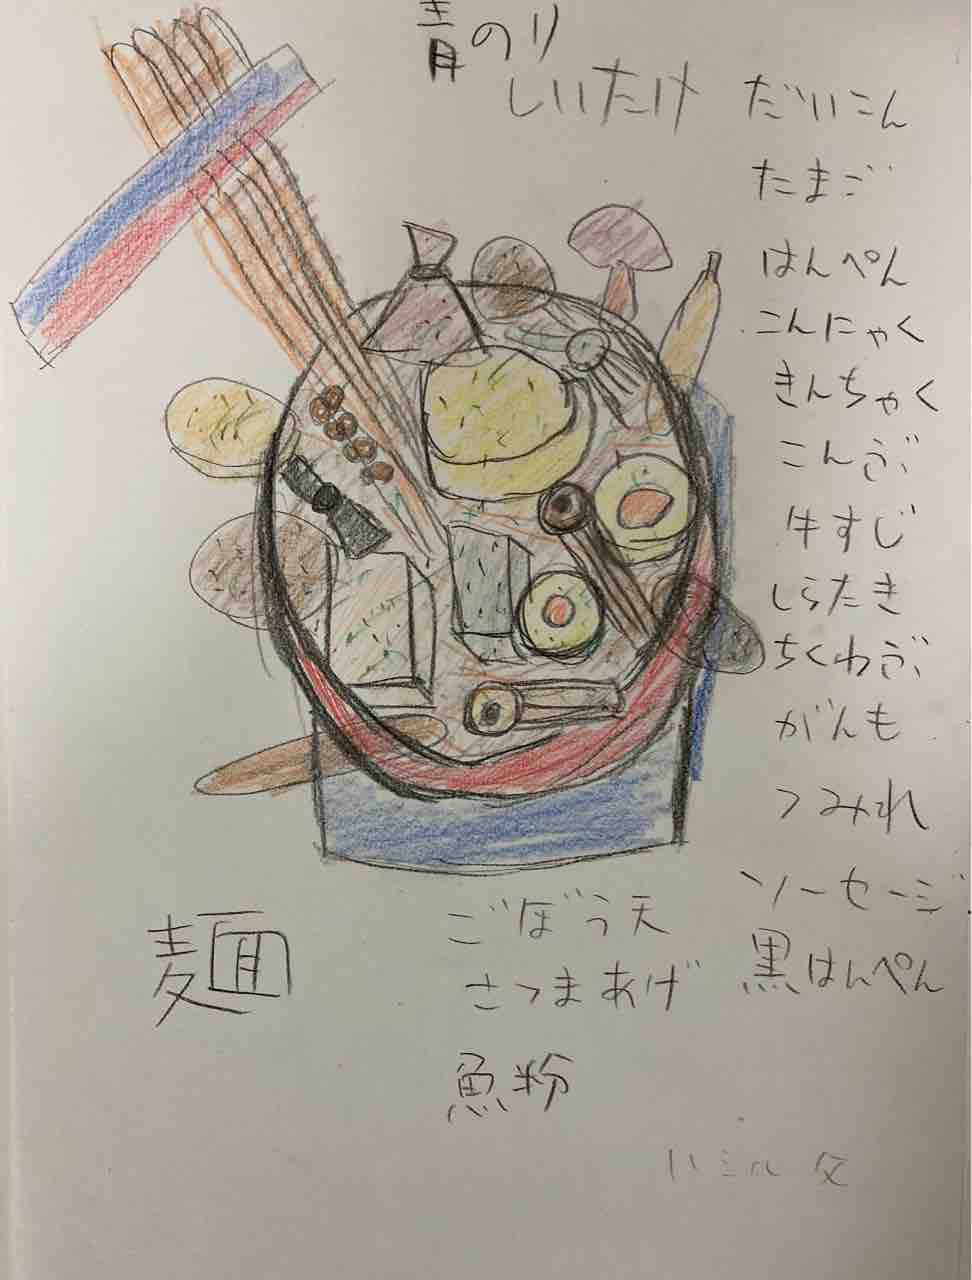 青のり
しいたけ
だいこん
たまご
はんぺん
こんにゃく
きんちゃく
こんぶ
牛すじ
しらたき
ちくわぶ
がんも
つみれ
ソーセージ
黒はんぺん
ごぼう天
さつまあげ
魚粉
麺
ハミル 父